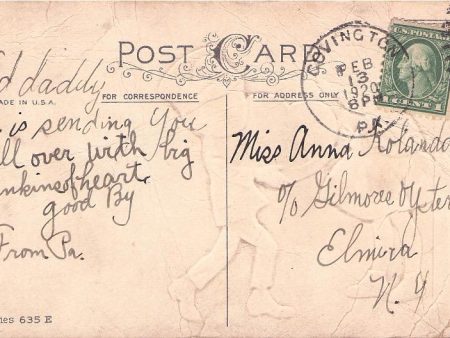 POST CARD
d daddy
MADE IN U.S.A.
FOR CORRESPONDENCE
is sending You
ll over with big
nkinsofheart
good By
From Pa.
ies 635 E
FOR ADDRESS ONLY
COVINGTON
FEB
13
1920
8 PM
U.S. POSTAGE
1 CENT 1
Miss Anna Rolando
c/o Gilmores Oyster
Elmira
N. Y